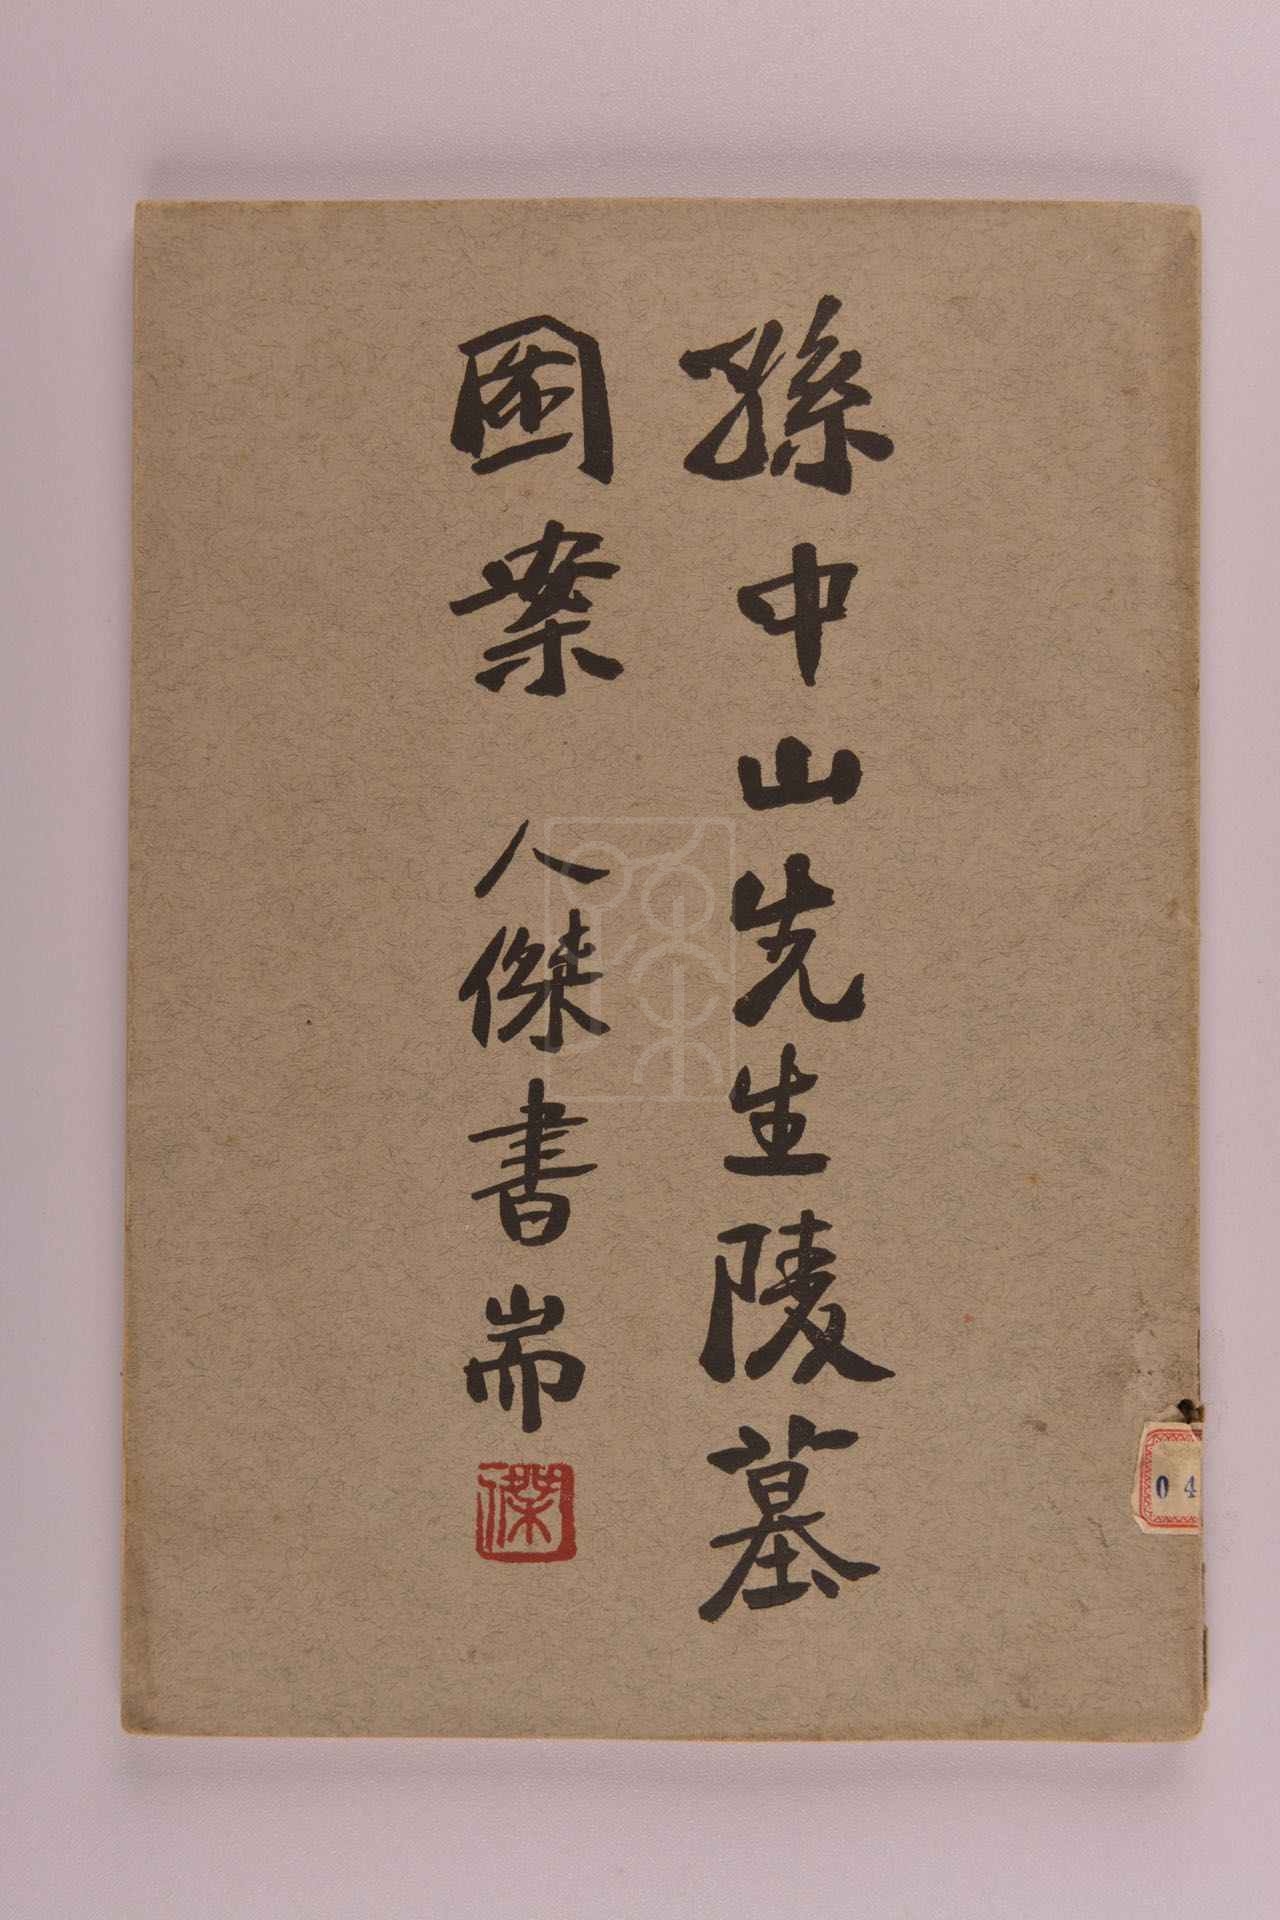 孫中山先生陵墓
圖案 人傑書耑
傑
04